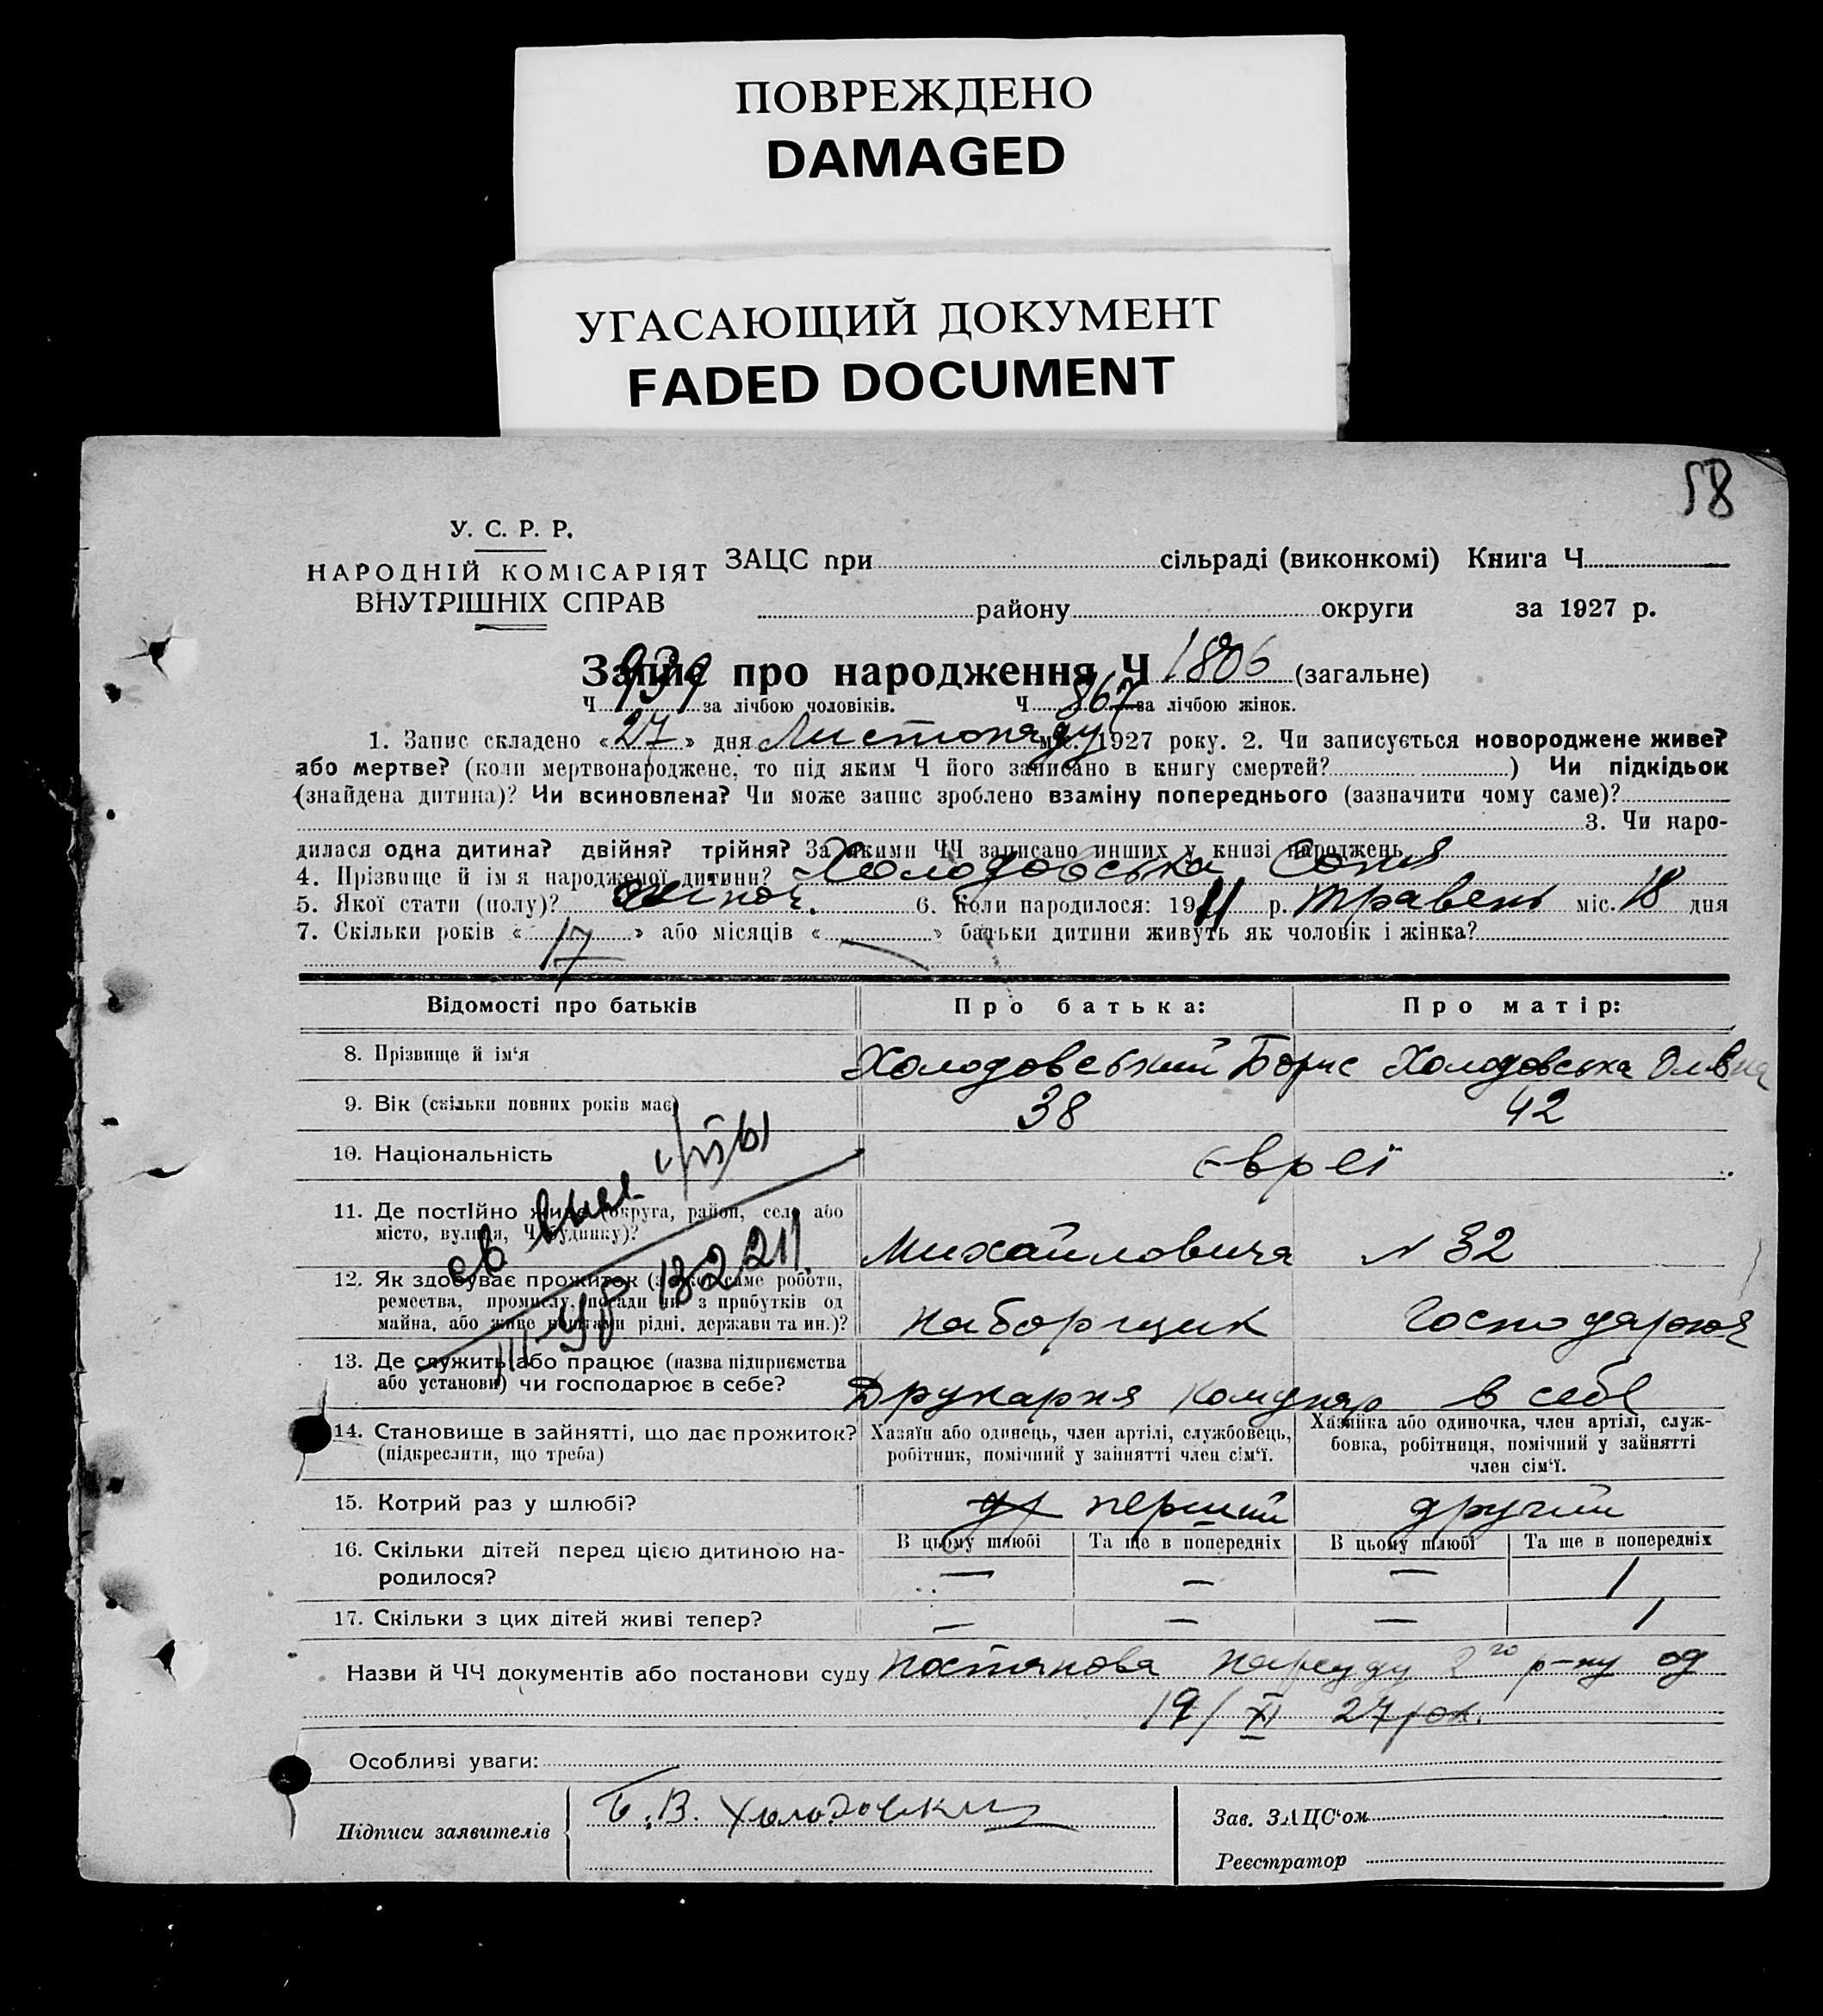 ПОВРЕЖДЕНО
DAMAGED
УГАСАЮЩИЙ ДОКУМЕНТ
FADED DOCUMENT
58
У. С. Р. Р.
НАРОДНІЙ КОМІСАРІЯТ
ВНУТРІШНІХ СПРАВ
ЗАЦС при сільраді (виконкомі) Книга Ч
району округи за 1927 р.
Запис про народження Ч 1806 (загальне)
Ч 939 за лічбою чоловіків. Ч 867 за лічбою жінок.
1. Запис складено «27» дня Листопаду міс. 1927 року. 2. Чи записується новороджене живе?
або мертве? (коли мертвонароджене, то під яким Ч його записано в книгу смертей? ) Чи підкідьок
(знайдена дитина)? Чи всиновлена? Чи може запис зроблено взаміну попереднього (зазначити чому саме)?
3. Чи наро-
дилася одна дитина? двійня? трійня? За якими ЧЧ записано инших у книзі народжень
4. Прізвище й ім я народженої дитини? Холодовська Соня
5. Якої стати (полу)? жіноч. 6. Коли народилося: 1911 р. травень міс. 18 дня
7. Скільки років «17» або місяців « — » батьки дитини живуть як чоловік і жінка?
Відомості про батьків Про батька: Про матір:
8. Прізвище й ім‘я Холодовський Борис Холодовська
9. Вік (скільки повних років має) 38 42
10. Національність Євреї
11. Де постійно живе (округа, район, село або
місто, вулиця, Ч будинку)? Михайловича № 32
12. Як здобуває прожиток (з якої саме роботи,
ремества, промислу, посади чи з прибутків од
майна, або живе коштами рідні, держави та ин.)? наборщик Господарює
13. Де служить або працює (назва підприємства
або установи) чи господарює в себе? Друкарня Комунар в себе
14. Становище в зайнятті, що дає прожиток?
(підкреслити, що треба)
Хазяїн або одинець, член артілі, службовець,
робітник, помічний у зайнятті член сім‘ї.
Хазяйка або одиночка, член артілі, служ-
бовка, робітниця, помічний у зайнятті
член сім‘ї.
15. Котрий раз у шлюбі? др перший другий
В цьому шлюбі Та ще в попередніх В цьому шлюбі Та ще в попередніх
16. Скільки дітей перед цією дитиною на-
родилося? — — — 1
17. Скільки з цих дітей живі тепер? — — — 1
Назви й ЧЧ документів або постанови суду Постанова Нарсуду 2го р-ну од
19/XI 27 рок.
Особливі уваги:
Підписи заявителів Б.В. Холодовский
Зав. ЗАЦС‘ом
Реєстратор